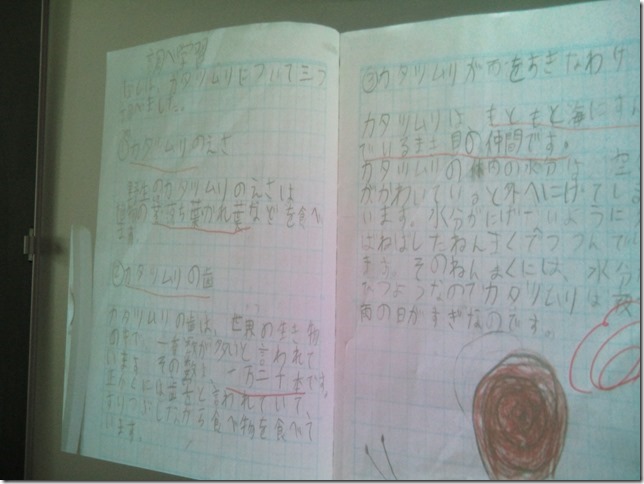 調べ学習
カタツムリについて三つ
調べました。
①カタツムリのえさ
野生のカタツムリのえさは
落ち葉かれ葉などを食べ
ます。
②カタツムリの歯
カタツムリの歯は、世界の生き物
の中で、一番数が多いと言われて
います。その数は、一万二千本です。
言われていて、
すりつぶしながら食べ物を食べて
います。
③カタツムリが雨をすきなわけ
カタツムリは、もともと海にす
んでいるまき貝の仲間です。
カタツムリの体内の水分は、空
がかわいていると外へにげてし
います。水分がにげないように
ねばねばしたねんまくでつつんで
ます。そのねんまくには、水分
ひつようなのでカタツムリは夜
雨の日がすきなのです。